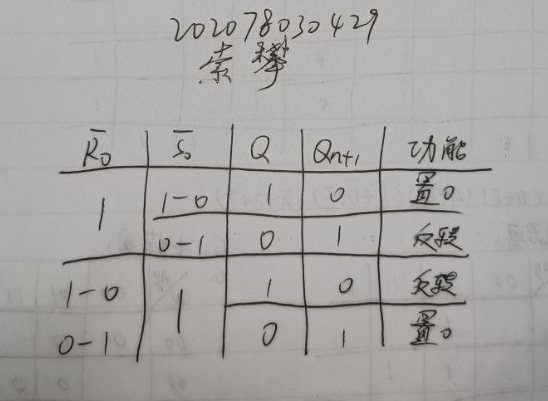 202078030429
索攀
R̄₀ S̄₀ Q Qn+1 功能
1 1-0 1 0 置0
0-1 0 1 反转
1-0 1 1 0 反转
0-1 0 1 置0